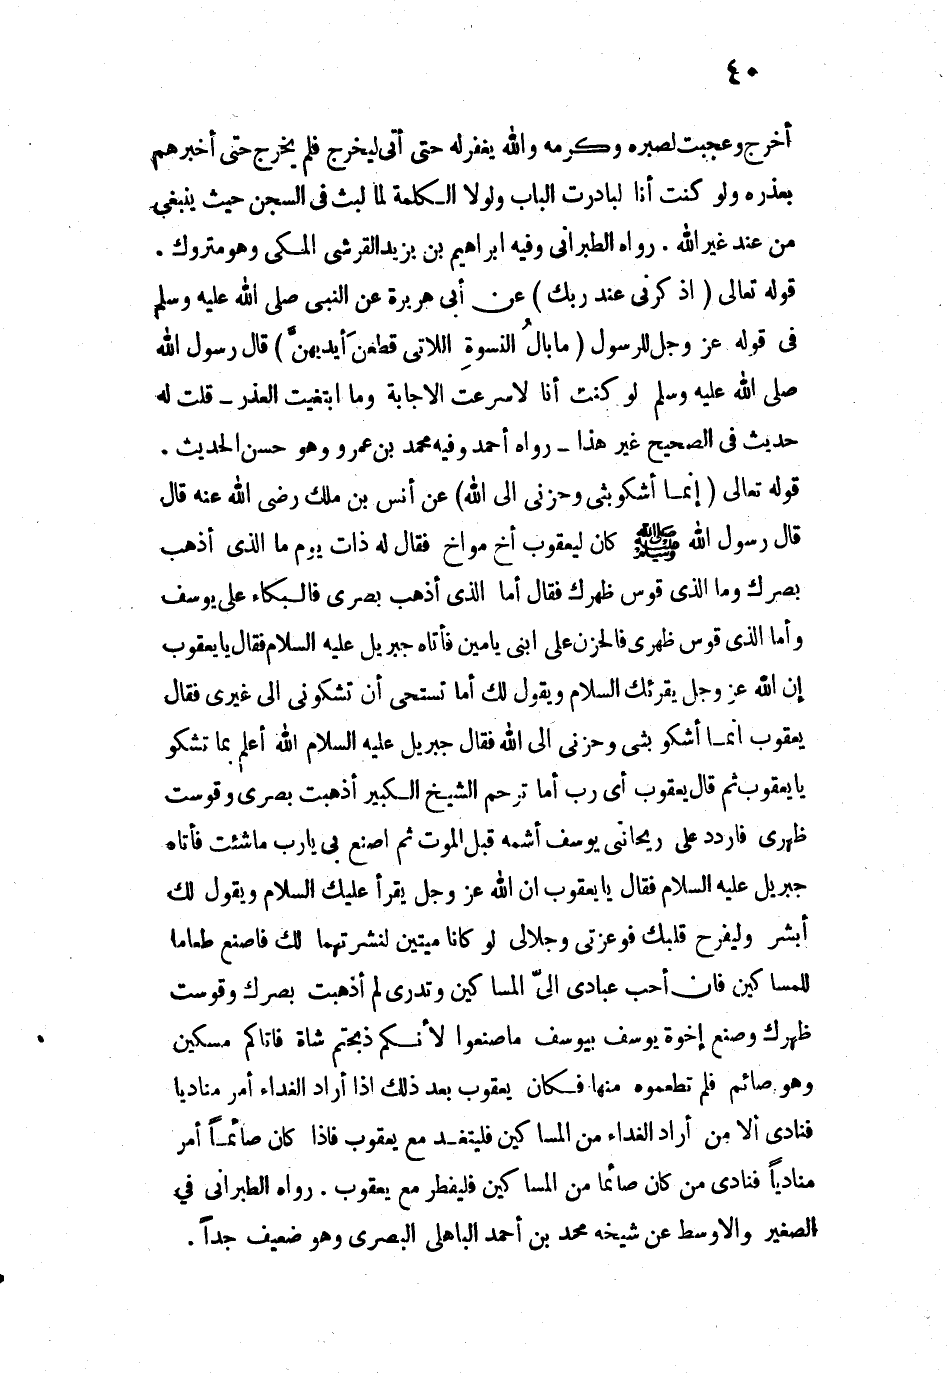 ٤٠
أخرج وعجبت لصبره وكرمه والله يغفر له حتى أتى ليخرج فلم يخرج حتى أخبرهم
بعذره ولو كنت أنا لبادرت الباب ولولا الكلمة لما لبث فى السجن حيث ينبغي
من عند غير الله . رواه الطبرانى وفيه ابراهيم بن يزيد القرشى المكى وهو متروك .
قوله تعالى ( اذكرنى عند ربك ) عن أبى هريرة عن النبى صلى الله عليه وسلم
فى قوله عز وجل للرسول ( ما بالُ النسوةِ اللاتى قطعنَ أيديهنَّ ) قال رسول الله
صلى الله عليه وسلم لو كنت أنا لاسرعت الاجابة وما ابتغيت العذر ــ قلت له
حديث فى الصحيح غير هذا ــ رواه أحمد وفيه محمد بن عمرو وهو حسن الحديث .
قوله تعالى ( إنما أشكو بثى وحزنى الى الله ) عن أنس بن ملك رضى الله عنه قال
قال رسول الله ﷺ كان ليعقوب أخ مواخ فقال له ذات يوم ما الذى أذهب
بصرك وما الذى قوس ظهرك فقال أما الذى أذهب بصرى فالبكاء على يوسف
وأما الذى قوس ظهرى فالحزن على ابنى يامين فأتاه جبريل عليه السلام فقال يا يعقوب
إن الله عز وجل يقرئك السلام ويقول لك أما تستحى أن تشكونى الى غيرى فقال
يعقوب انما أشكو بثى وحزنى الى الله فقال جبريل عليه السلام الله أعلم بما تشكو
يا يعقوب ثم قال يعقوب أى رب أما ترحم الشيخ الكبير أذهبت بصرى وقوست
ظهرى فاردد على ريحانتى يوسف أشمه قبل الموت ثم اصنع بى يارب ما شئت فأتاه
جبريل عليه السلام فقال يا يعقوب ان الله عز وجل يقرأ عليك السلام ويقول لك
أبشر وليفرح قلبك فوعزتى وجلالى لو كانا ميتين لنشرتهما لك فاصنع طعاما
للمساكين فان أحب عبادى الىّ المساكين وتدرى لم أذهبت بصرك وقوست
ظهرك وصنع إخوة يوسف بيوسف ما صنعوا لأنكم ذبحتم شاة فاتاكم مسكين
وهو صائم فلم تطعموه منها فكان يعقوب بعد ذلك اذا أراد الغداء أمر مناديا
فنادى ألا من أراد الغداء من المساكين فليتغد مع يعقوب فاذا كان صائماً أمر
منادياً فنادى من كان صائما من المساكين فليفطر مع يعقوب . رواه الطبرانى في
الصغير والاوسط عن شيخه محمد بن أحمد الباهلى البصرى وهو ضعيف جداً .